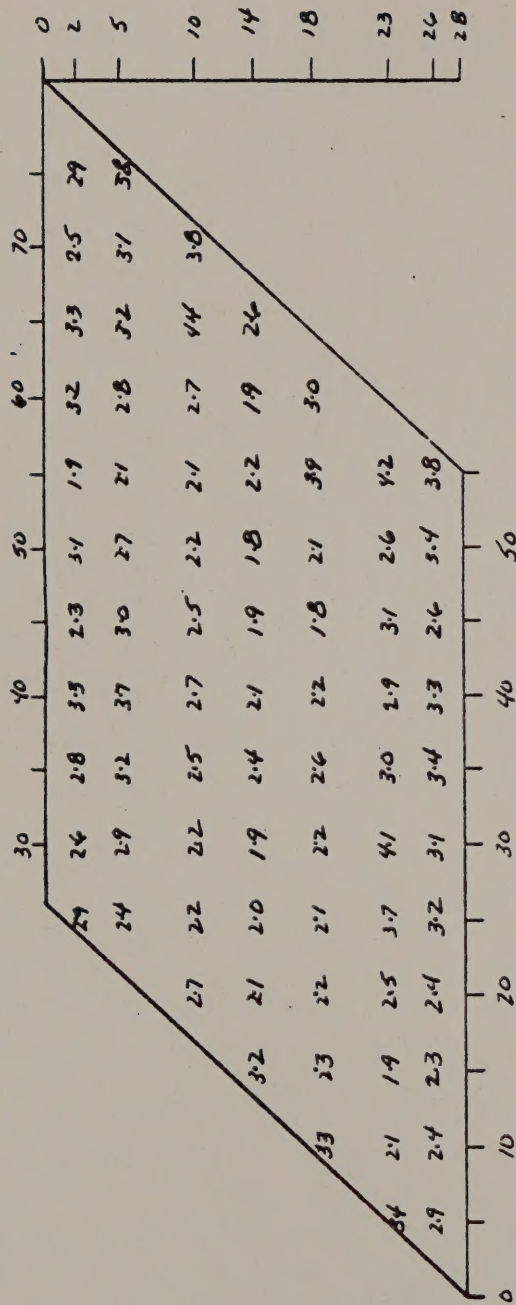 30 40 50 60 70 0
2.9 2.6 2.8 3.3 2.3 3.1 1.9 3.2 3.3 2.5 2.9 2
2.4 2.9 3.2 3.7 3.0 2.7 2.1 2.8 3.2 3.1 3.8 5
2.7 2.2 2.2 2.5 2.7 2.5 2.2 2.1 2.7 4.4 3.8 10
3.2 2.1 2.0 1.9 2.4 2.1 1.9 1.8 2.2 1.9 2.6 14
3.3 2.3 2.2 2.1 2.2 2.6 2.2 1.8 2.1 3.9 3.0 18
3.4 2.1 1.9 2.5 3.7 4.1 3.0 2.9 3.1 2.6 4.2 23
2.9 2.4 2.3 2.4 3.2 3.1 3.4 3.3 2.6 3.4 3.8 26
28
0 10 20 30 40 50